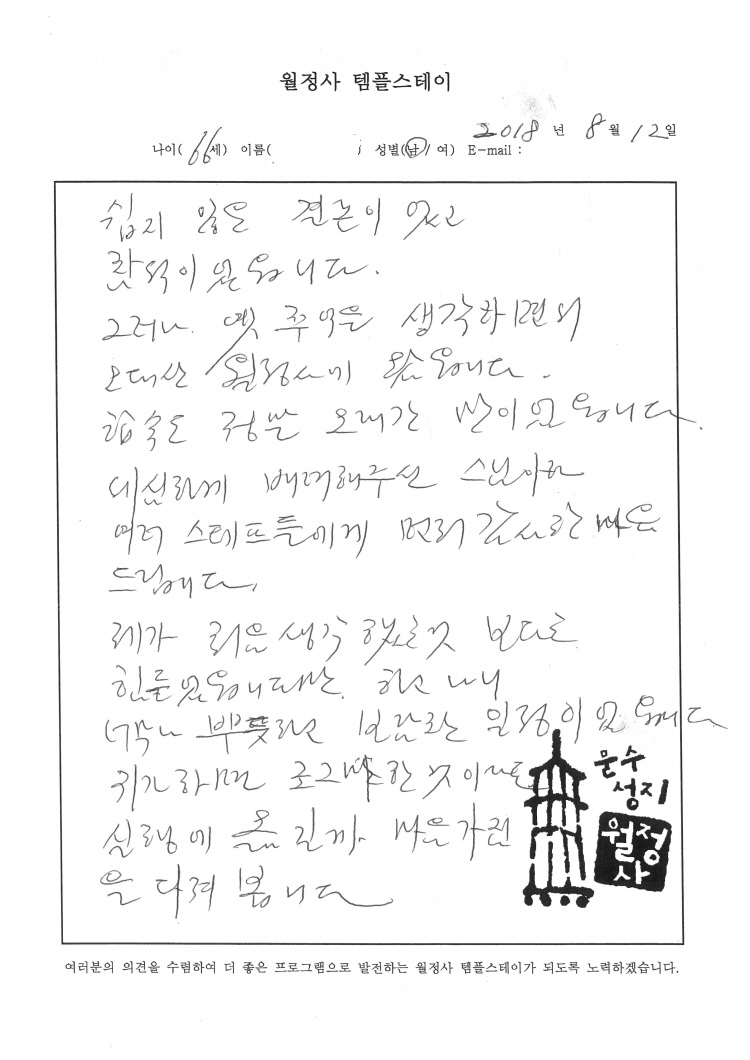 월정사 템플스테이
2018 년 8 월 12 일
나이( 66 세) 이름( ) 성별(남 / 여) E-mail :
쉽지 않은 결론이 였고
랏석이 였읍니다.
그러나 옛 추억을 생각하면서
오대산 월정사에 왔읍니다.
접속도 정말 오래간 만이 였읍니다.
세심하게 배려해주신 스님이하
여러 스테프들에게 먼저 감사한 마음
드림니다.
제가 처음 생각 했든것 보다는
힘들 였읍니다만. 하고 나니
너무나 뿌듯하고 보람찬 일정이 였읍니다
귀가하면 조그마한 것이라도
실행에 옮길까 마음가짐
을 다져 봅니다
문수
성지
월정
사
여러분의 의견을 수렴하여 더 좋은 프로그램으로 발전하는 월정사 템플스테이가 되도록 노력하겠습니다.